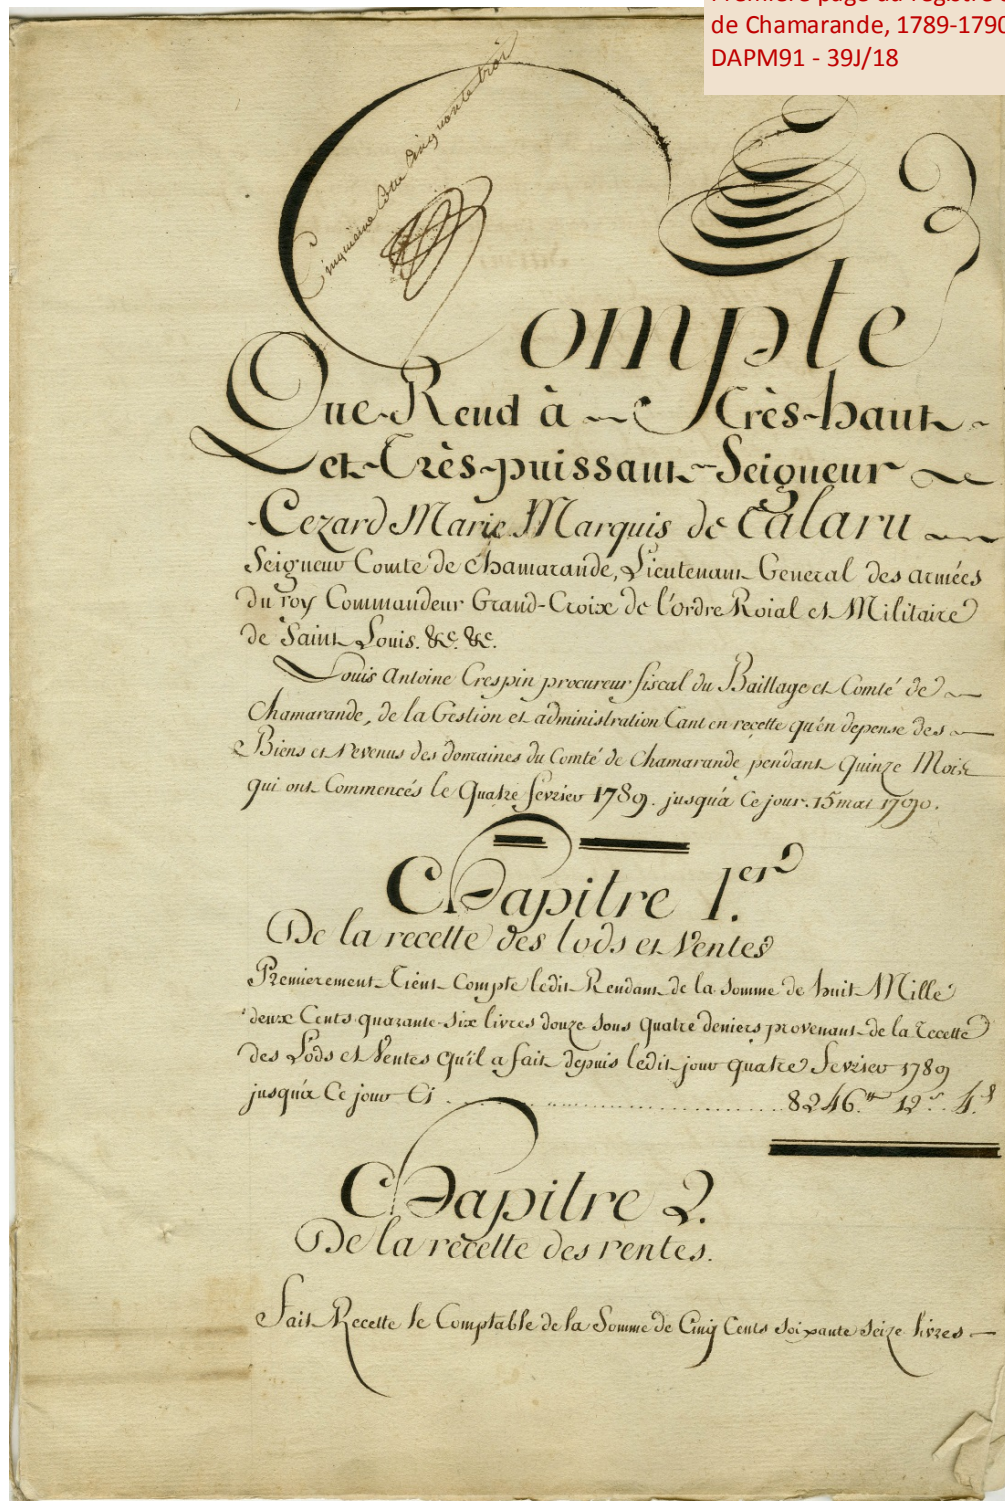 Première page du registre
de Chamarande, 1789-1790
DAPM91 - 39J/18
Cinquieme Cotte Cinquante trois
Compte
Que Rend à Très-haut
et Très-puissant Seigneur
Cezard Marie Marquis de Talaru
Seigneur Comte de Chamarande, Lieutenant General des armées
du roy Commandeur Grand-Croix de l'Ordre Roial et Militaire
de Saint Louis. &c. &c.
Louis Antoine Crespin procureur fiscal du Baillage et Comté de
Chamarande, de la Gestion et administration tant en recette qu'en depense des
Biens et revenus des domaines du Comté de Chamarande pendant Quinze Mois
qui ont Commencés le Quatre fevrier 1789. jusqu'a Ce jour. 15 mai 1790.
Chapitre 1.er
De la recette des lods et Ventes
Premierement Tient Compte ledit Rendant de la somme de huit Mille
deux Cents quarante-six livres douze sous Quatre deniers provenant de la recette
des Lods et Ventes qu'il a fait depuis ledit jour quatre fevrier 1789
jusqu'a Ce jour Ci ........ 8246.tt 12.s 4.d
Chapitre 2.
De la recette des rentes.
Fait Recette le Comptable de la Somme de Cinq Cents soixante seize livres